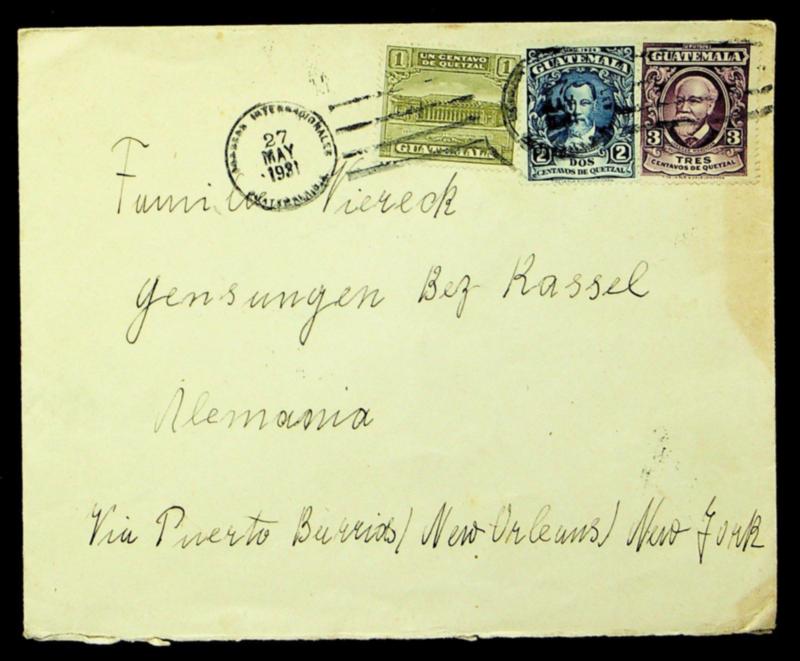 1 UN CENTAVO DE QUETZAL 1
GUATEMALA
GUATEMALA
2 DOS 2
CENTAVOS DE QUETZAL
GUATEMALA
3 TRES 3
CENTAVOS DE QUETZAL
INTERNACIONALES
27
MAY
1931
Familie Viereck
Gensungen Bez Kassel
Alemania
Via Puerto Barrios/ New Orleans/ New York